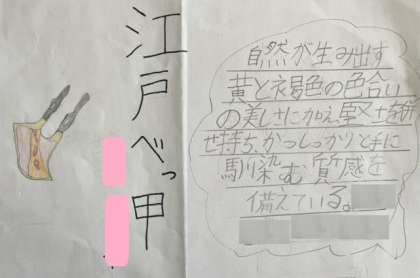 江戸べっ甲
自然が生み出す
黄と褐色の色合い
の美しさにかえ、堅さを併
せ持ち、かつしっかりと手に
馴染む質感を
備えている。